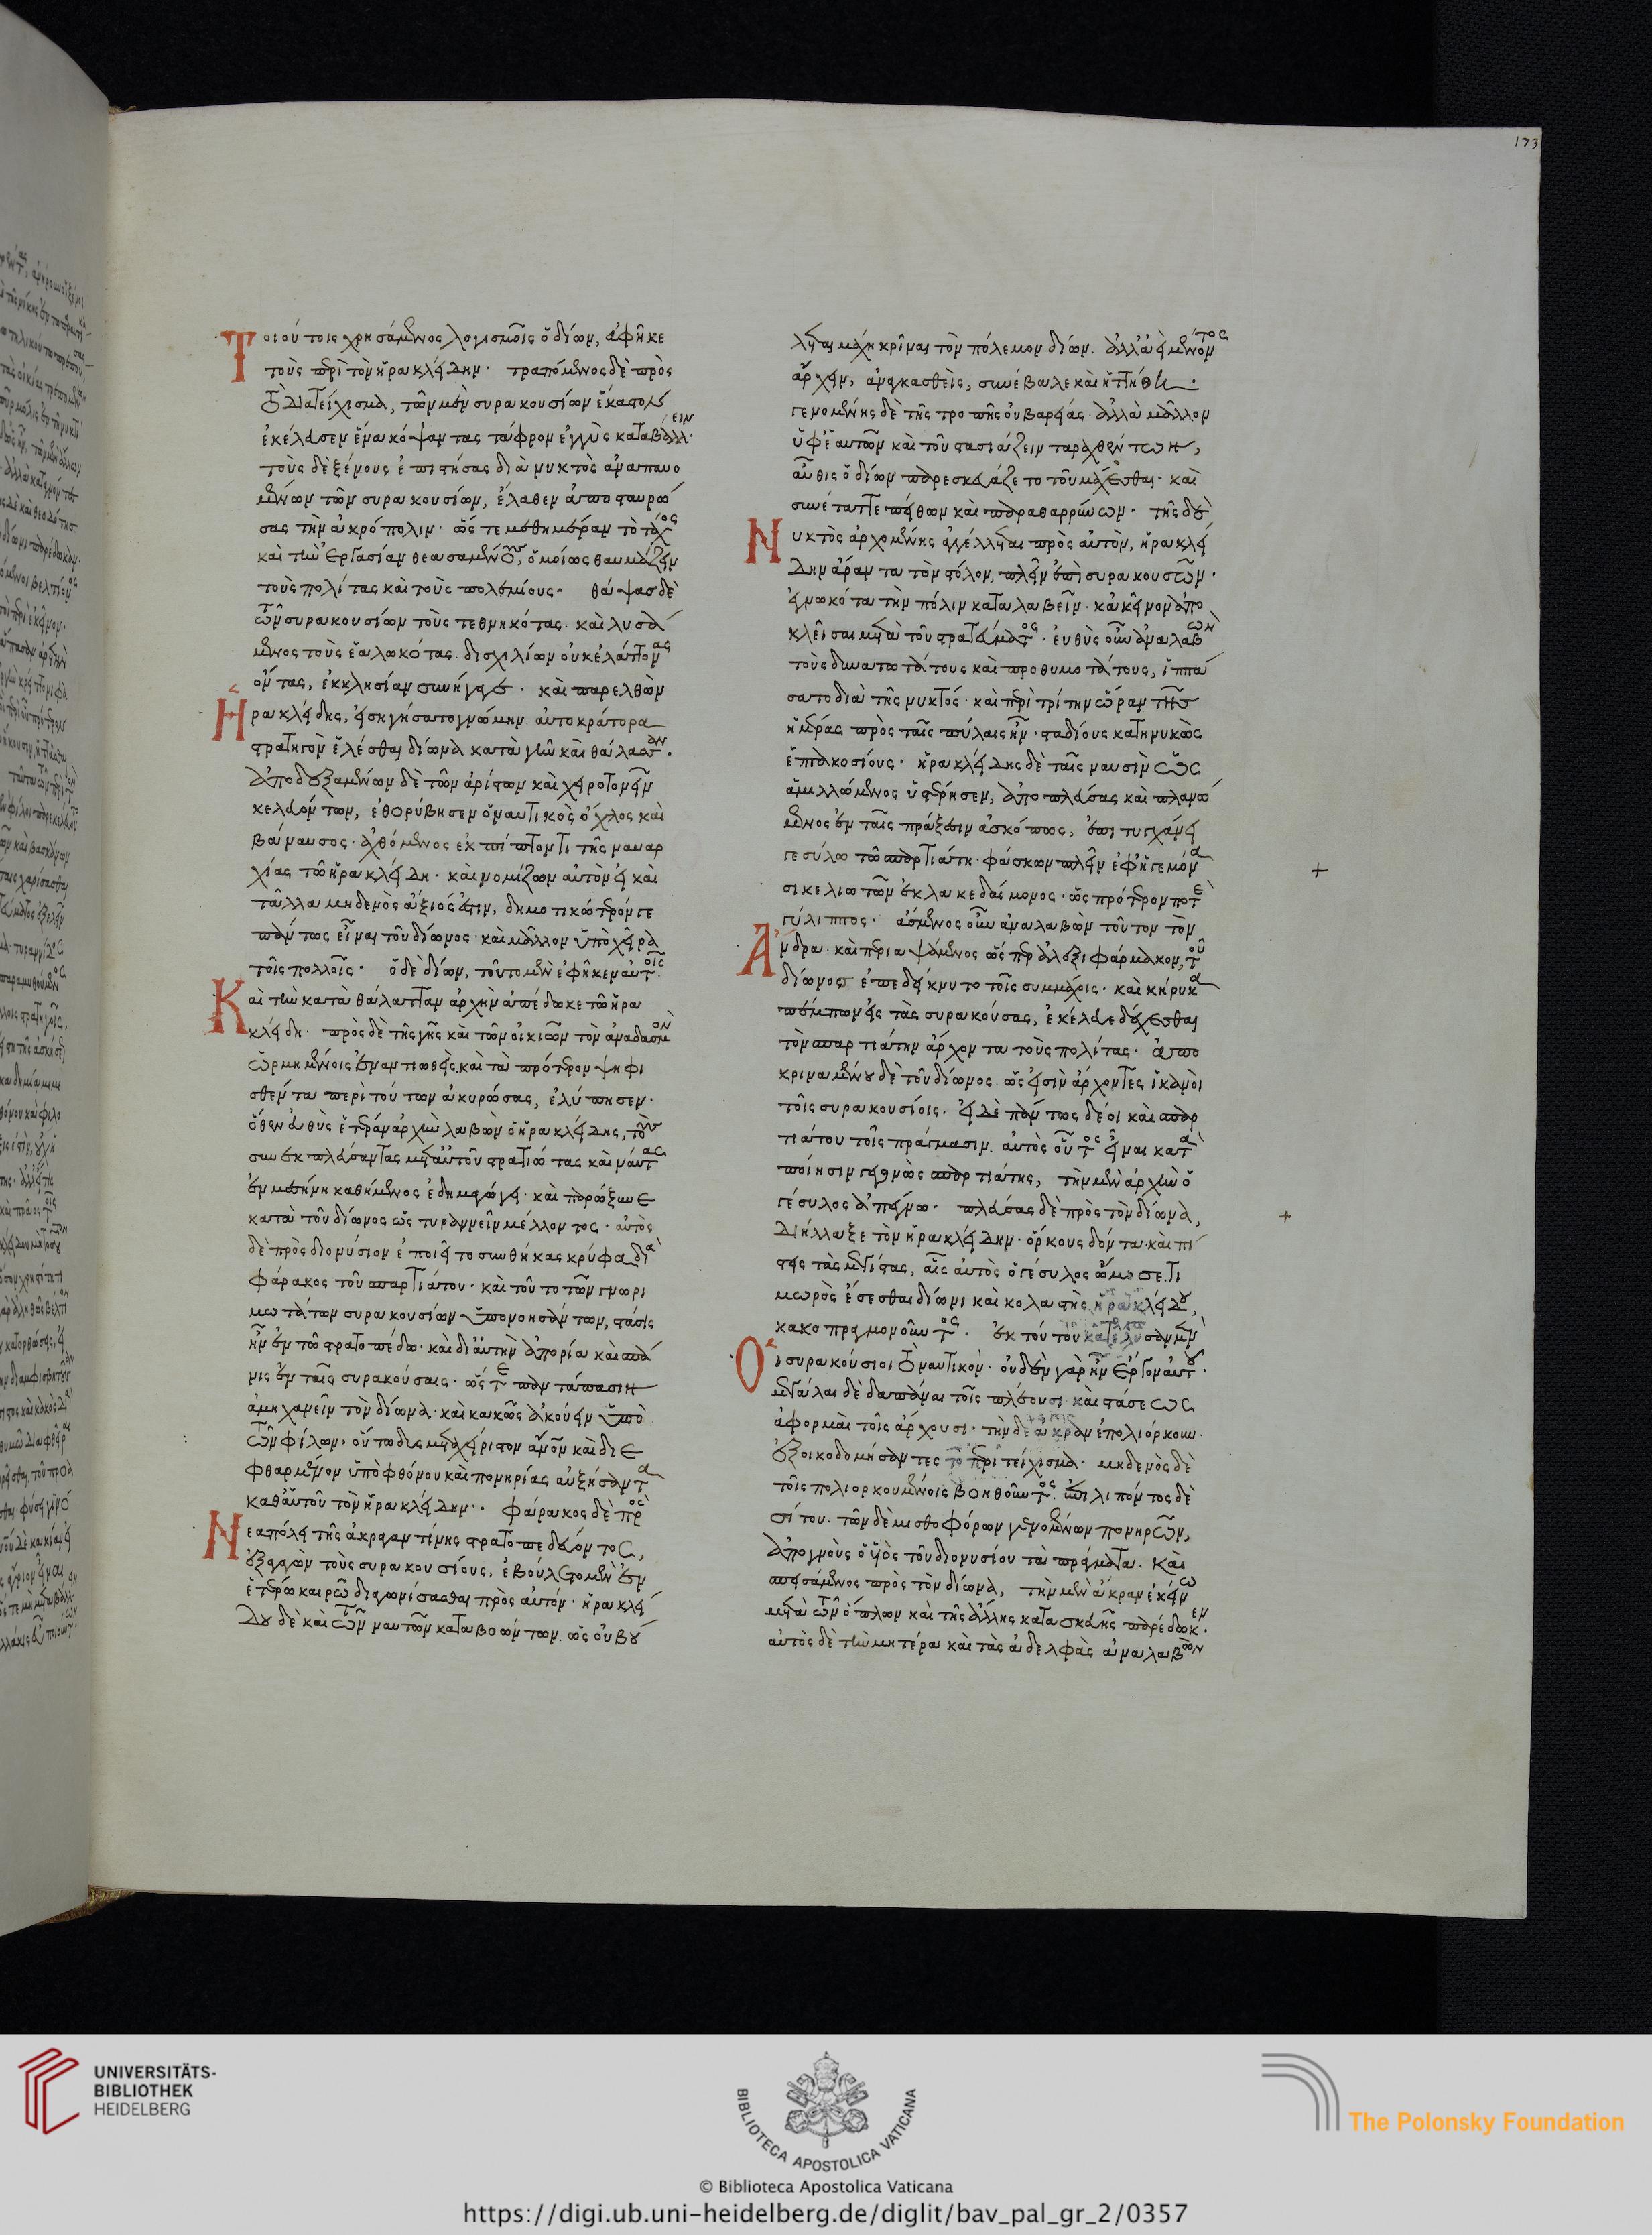 173
Τοιούτοις χρησάμενος λογισμοῖς ὁ δίων, ἀφῆκε
τοὺς περὶ τὸν ἡρακλείδην· τραπόμενος δὲ πρὸς
τὸ διατείχισμα, τῶν μὲν συρακουσίων ἕκαστον
ἐκέλευσεν ἕνα κόψαντας ταύφρον ἐγγὺς καταβάλλειν·
τοὺς δὲ ξένους ἐπιστήσας διὰ νυκτὸς ἀναπαυο
μένων τῶν συρακουσίων, ἔλαθεν ἀποσταυρώ
σας τὴν ἀκρόπολιν· ὥστε μεθημέραν τὸ τάχος
καὶ τὴν ἐργασίαν θεασαμένους, ὁμοίως θαυμάζειν
τοὺς πολίτας καὶ τοὺς πολεμίους· θάψας δὲ
τῶν συρακουσίων τοὺς τεθνηκότας· καὶ λυσά
μενος τοὺς ἑαλωκότας δισχιλίων οὐκ ἐλάττονας
ὄντας, ἐκκλησίαν συνήγαγεν· καὶ παρελθὼν
Ἡρακλείδης, εἰσηγήσατο γνώμην αὐτοκράτορα
στρατηγὸν ἑλέσθαι δίωνα κατὰ γῆν καὶ θάλασσαν·
ἀποδεξαμένων δὲ τῶν ἀρίστων καὶ χειροτονεῖν
κελευόντων, ἐθορύβησεν ὁ ναυτικὸς ὄχλος καὶ
βάναυσος· ἀχθόμενος ἐκπίπτοντι τῆς ναυαρ
χίας τῷ ἡρακλείδη· καὶ νομίζων αὐτὸν εἰ καὶ
τἆλλα μηδενὸς ἄξιός ἐστιν, δημοτικώτερόν γε
πάντως εἶναι τοῦ δίωνος· καὶ μᾶλλον ὑπὸ χεῖρα
τοῖς πολλοῖς· ὁ δὲ δίων, τοῦτο μὲν ἐφῆκεν αὐτοῖς·
Καὶ τὴν κατὰ θάλατταν ἀρχὴν ἀπέδωκε τῷ ἡρα
κλείδη· πρὸς δὲ τῆς γῆς καὶ τῶν οἰκιῶν τὸν ἀναδασμὸν
ὡρμημένοις ἐναντιωθεὶς, καὶ τὰ πρότερον ψηφι
σθέντα περὶ τούτων ἀκυρώσας, ἐλύπησεν·
ὅθεν εὐθὺς ἑτέραν ἀρχὴν λαβὼν ὁ ἡρακλείδης, τοὺς
συνεκπλεύσαντας μετ' αὐτοῦ στρατιώτας καὶ ναύτας
ἐν μεσήνη καθήμενος ἐδημαγώγει· καὶ παρώξυνε
κατὰ τοῦ δίωνος ὡς τυραννεῖν μέλλοντος· αὐτὸς
δὲ πρὸς διονύσιον ἐποιεῖτο συνθήκας κρύφα διὰ
φάρακος τοῦ σπαρτιάτου· καὶ τοῦτο τῶν γνωρι
μωτάτων συρακουσίων ὑπονοησάντων, στάσις
ἦν ἐν τῷ στρατοπέδω· καὶ δι' αὐτὴν ἀπορία καὶ σπά
νις ἐν ταῖς συρακούσαις· ὥστε πανταπάσιν
ἀμηχανεῖν τὸν δίωνα· καὶ κακῶς ἀκούειν ὑπὸ
τῶν φίλων· οὕτω δυσμεταχείριστον ἄνον καὶ διε
φθαρμένον ὑπὸ φθόνου καὶ πονηρίας αὐξήσαντα
καθ' αὑτοῦ τὸν ἡρακλείδην· φάρακος δὲ πρὸς
Νεαπόλει τῆς ἀκραγαντίνης στρατοπεδεύοντος,
ἐξαγαγὼν τοὺς συρακουσίους, ἐβούλετο μὲν ἐν
ἑτέρω καιρῷ διαγωνίσασθαι πρὸς αὐτόν· ἡρακλεί
δου δὲ καὶ τῶν ναυτῶν καταβοώντων, ὡς οὐ βού
λεται μάχη κρῖναι τὸν πόλεμον δίων· ἀλλ' ἀεὶ μένοντος
ἄρχειν, ἀναγκασθεὶς, συνέβαλε καὶ ἡττήθη·
γενομένης δὲ τῆς τροπῆς οὐ βαρείας· ἀλλὰ μᾶλλον
ὑφ' ἑαυτῶν καὶ τοῦ στασιάζειν ταραχθέντων,
αὖθις ὁ δίων παρεσκευάζετο τοῦ μάχεσθαι· καὶ
συνέταττε πείθων καὶ παραθαρρύνων· τῆς δὲ
Νυκτὸς ἀρχομένης ἀγγέλλεται πρὸς αὐτὸν, ἡρακλεί
δην ἄραντα τὸν στόλον, πλεῖν ἐπὶ συρακουσῶν·
ἐγνωκότα τὴν πόλιν καταλαβεῖν· κἀκεῖνον ἀπο
κλεῖσαι μετὰ τοῦ στρατεύματος· εὐθὺς οὖν ἀναλαβὼν
τοὺς δυνατωτάτους καὶ προθυμοτάτους, ἱππά
σατο διὰ τῆς νυκτός· καὶ περὶ τρίτην ὥραν τῆς
ἡμέρας πρὸς ταῖς πύλαις ἦν· σταδίους κατηνυκὼς
ἑπτακοσίους· ἡρακλείδης δὲ ταῖς ναυσὶν ὡς
ἁμιλλώμενος ὑστέρησεν, ἀποπλεύσας καὶ πλανώ
μενος ἐν ταῖς πράξεσιν ἀσκόπως, ἐπιτυγχάνει
γεσύλω τῷ σπαρτιάτη· φάσκων πλεῖν ἐφ' ἡγεμόνα
σικελιωτῶν ἐκ λακεδαίμονος· ὡς πρότερον ποτὲ
γύλιππος· ἄσμενος οὖν ἀναλαβὼν τοῦτον τὸν
Ἄνδρα· καὶ περιαψάμενος ὥσπερ ἀλεξιφάρμακον, τοῦ
δίωνος ἐπεδείκνυτο τοῖς συμμάχοις· καὶ κήρυκα
πέμπων εἰς τὰς συρακούσας, ἐκέλευε δέχεσθαι
τὸν σπαρτιάτην ἄρχοντα τοὺς πολίτας· ἀπο
κριναμένου δὲ τοῦ δίωνος ὡς εἰσὶν ἄρχοντες ἱκανοὶ
τοῖς συρακουσίοις· εἰ δὲ πάντως δέοι καὶ σπαρ
τιάτου τοῖς πράγμασιν αὐτὸς οὗτος εἶναι κατὰ
ποίησιν γεγονὼς σπαρτιάτης, τὴν μὲν ἀρχὴν ὁ
γέσυλος ἀπέγνω· πλεύσας δὲ πρὸς τὸν δίωνα,
διήλλαξε τὸν ἡρακλείδην· ὅρκους δόντα καὶ πί
στεις τὰς μεγίστας, αἷς αὐτὸς ὁ γέσυλος ὤμοσε τι
μωρὸς ἔσεσθαι δίωνι καὶ κολαστὴς ἡρακλείδου,
κακοπραγμονοῦντος· ἐκ τούτου κατέλυσαν μὲν
Οἱ συρακούσιοι τὸ ναυτικὸν· οὐδὲν γὰρ ἦν ἔργον αὐτοῦ·
μεγάλαι δὲ δαπάναι τοῖς πλέουσι καὶ στάσεως
ἀφορμαὶ τοῖς ἄρχουσι· τὴν δὲ ἄκραν ἐπολιόρκουν
ἐξοικοδομήσαντες τὸ περιτείχισμα· μηδενὸς δὲ
τοῖς πολιορκουμένοις βοηθοῦντος· ἐπιλιπόντος δὲ
σίτου· τῶν δὲ μισθοφόρων γενομένων πονηρῶν,
ἀπογνοὺς ὁ υἱὸς τοῦ διονυσίου τὰ πράγματα· καὶ
σπεισάμενος πρὸς τὸν δίωνα, τὴν μὲν ἄκραν ἐκείνω
μετὰ τῶν ὅπλων καὶ τῆς ἄλλης κατασκευῆς παρέδωκεν·
αὐτὸς δὲ τὴν μητέρα καὶ τὰς ἀδελφὰς ἀναλαβὼν
UNIVERSITÄTS-
BIBLIOTHEK
HEIDELBERG
BIBLIOTECA APOSTOLICA VATICANA
The Polonsky Foundation
© Biblioteca Apostolica Vaticana
https://digi.ub.uni-heidelberg.de/diglit/bav_pal_gr_2/0357